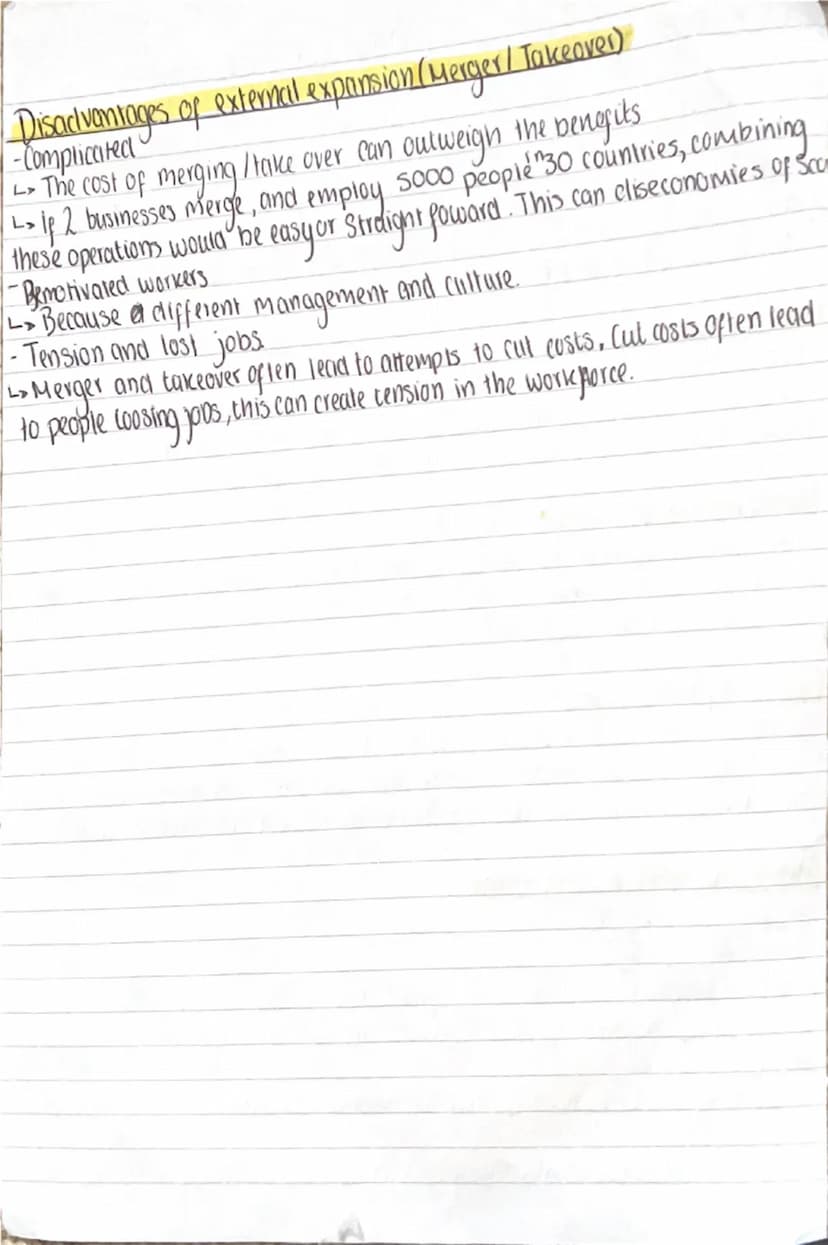 Disadvantages of external expansion (Merger / Takeover)
- Complicated
↳ The cost of merging / take over can outweigh the benefits
↳ If 2 businesses merge, and employ 5000 people in 30 countries, combining
these operations would be easy or straight foward. This can diseconomies of sca
- Demotivated workers
↳ Because different management and culture.
- Tension and lost jobs
↳ Merger and takeover often lead to attempts to cut costs. Cut costs often lead
to people loosing jobs, this can create tension in the workforce.